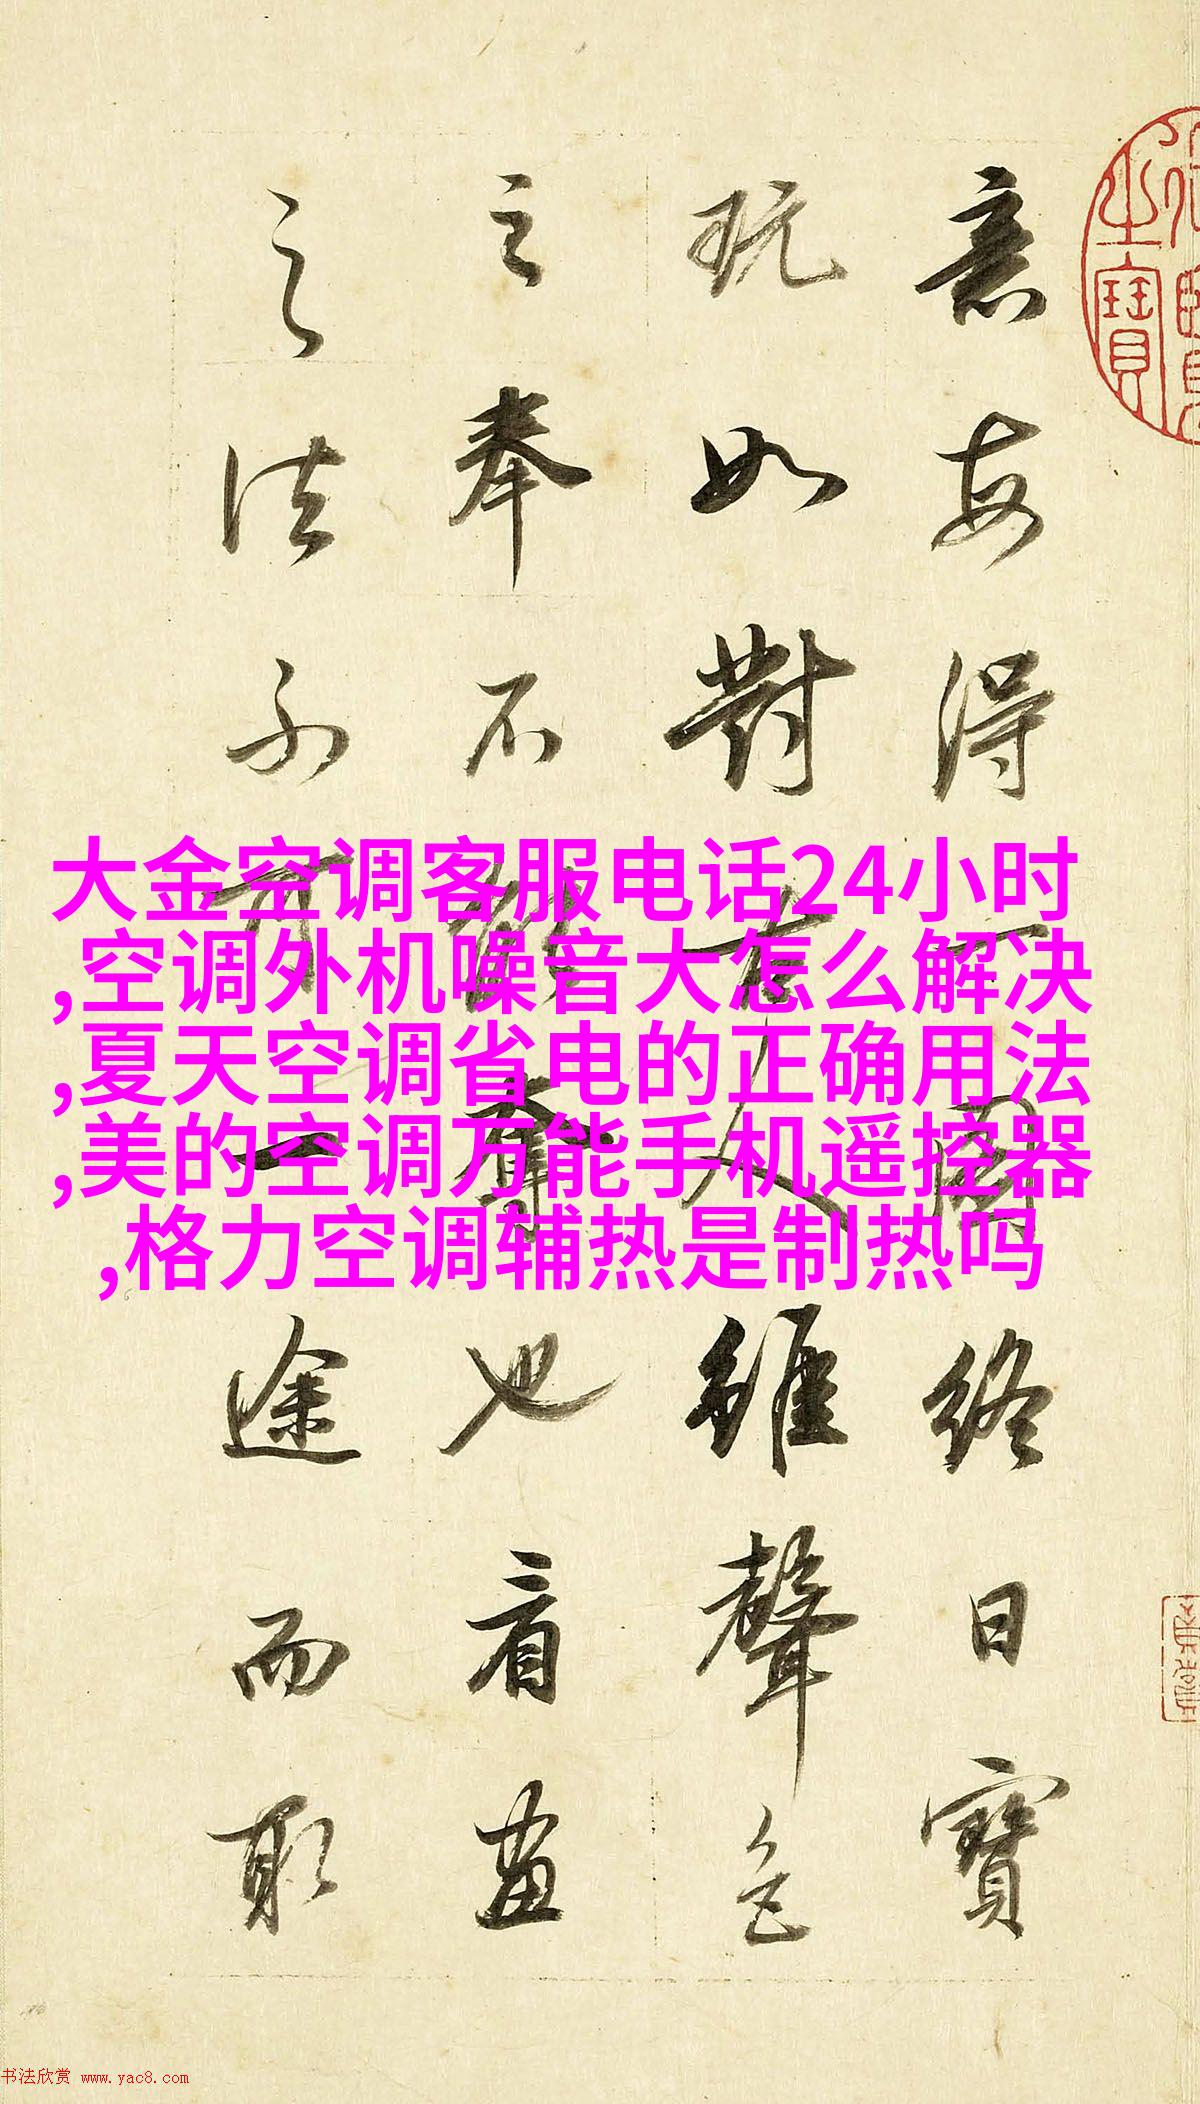 意每得一圖終日寶
玩如對古人雖聲色
之奉不能奪也看畫
之法不可一途而取
大金空调客服电话24小时
,空调外机噪音大怎么解决
,夏天空调省电的正确用法
,美的空调万能手机遥控器
,格力空调辅热是制热吗
之寶
书法欣赏 www.yac8.com